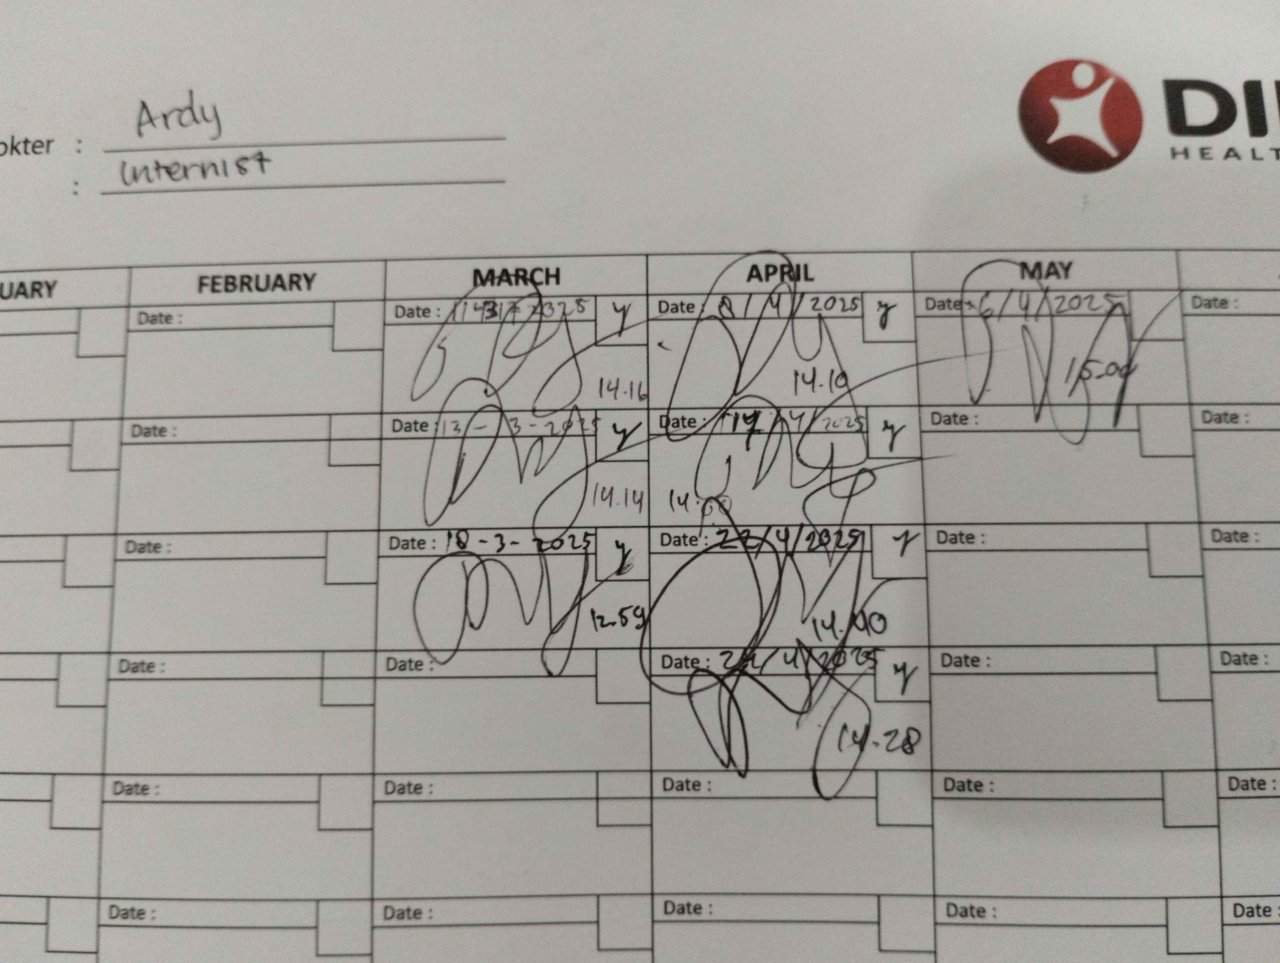 Ardy
okter :
Internist
:
DI
HEALT
UARY FEBRUARY MARCH APRIL MAY
Date : Date : 2025 y Date : 8/4/2025 y Date : 6/4/2025 Date :
14.16 14.10 15.00
Date : Date : 13-3-2025 y Date : 17/4/2025 y Date : Date :
14.14 14.
Date : Date : 18-3-2025 y Date : 22/4/2025 y Date : Date :
12.59 14.40
Date : Date : Date : /4/2025 y Date : Date :
14.28
Date : Date : Date : Date : Date :
Date : Date : Date : Date : Date :